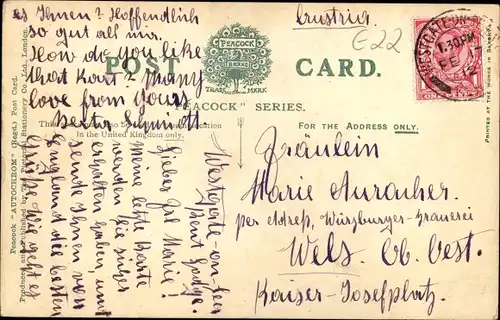 es Ihnen? Hoffendlich
so gut als mir.
How do you like
that Kart? Many
love from yours
Austria
E22
POST CARD.
PEACOCK
BRAND
TRADE MARK
"PEACOCK" SERIES.
WESTGATE-ON-SEA
1.30PM
FE
12
in the United Kingdom only.
FOR THE ADDRESS ONLY.
Fräulein
Marie Auracher
per Adress, Würzburger-Brauerei
Wels Ob. Oest.
Kaiser-Josefplatz.
Westgate-on-Sea
Liebes Frl. Marie!
werden Sie sicher
meine letzte Karte
erhalten haben, und
sende Ihnen von
England die besten
Grüße. Wie geht es
Peacock "AUTOCHROM" (Regd.) Post Card.
Produced and Published by The Pictorial Stationery Co. Ltd., London.
PRINTED AT THE WORKS IN SAXONY.